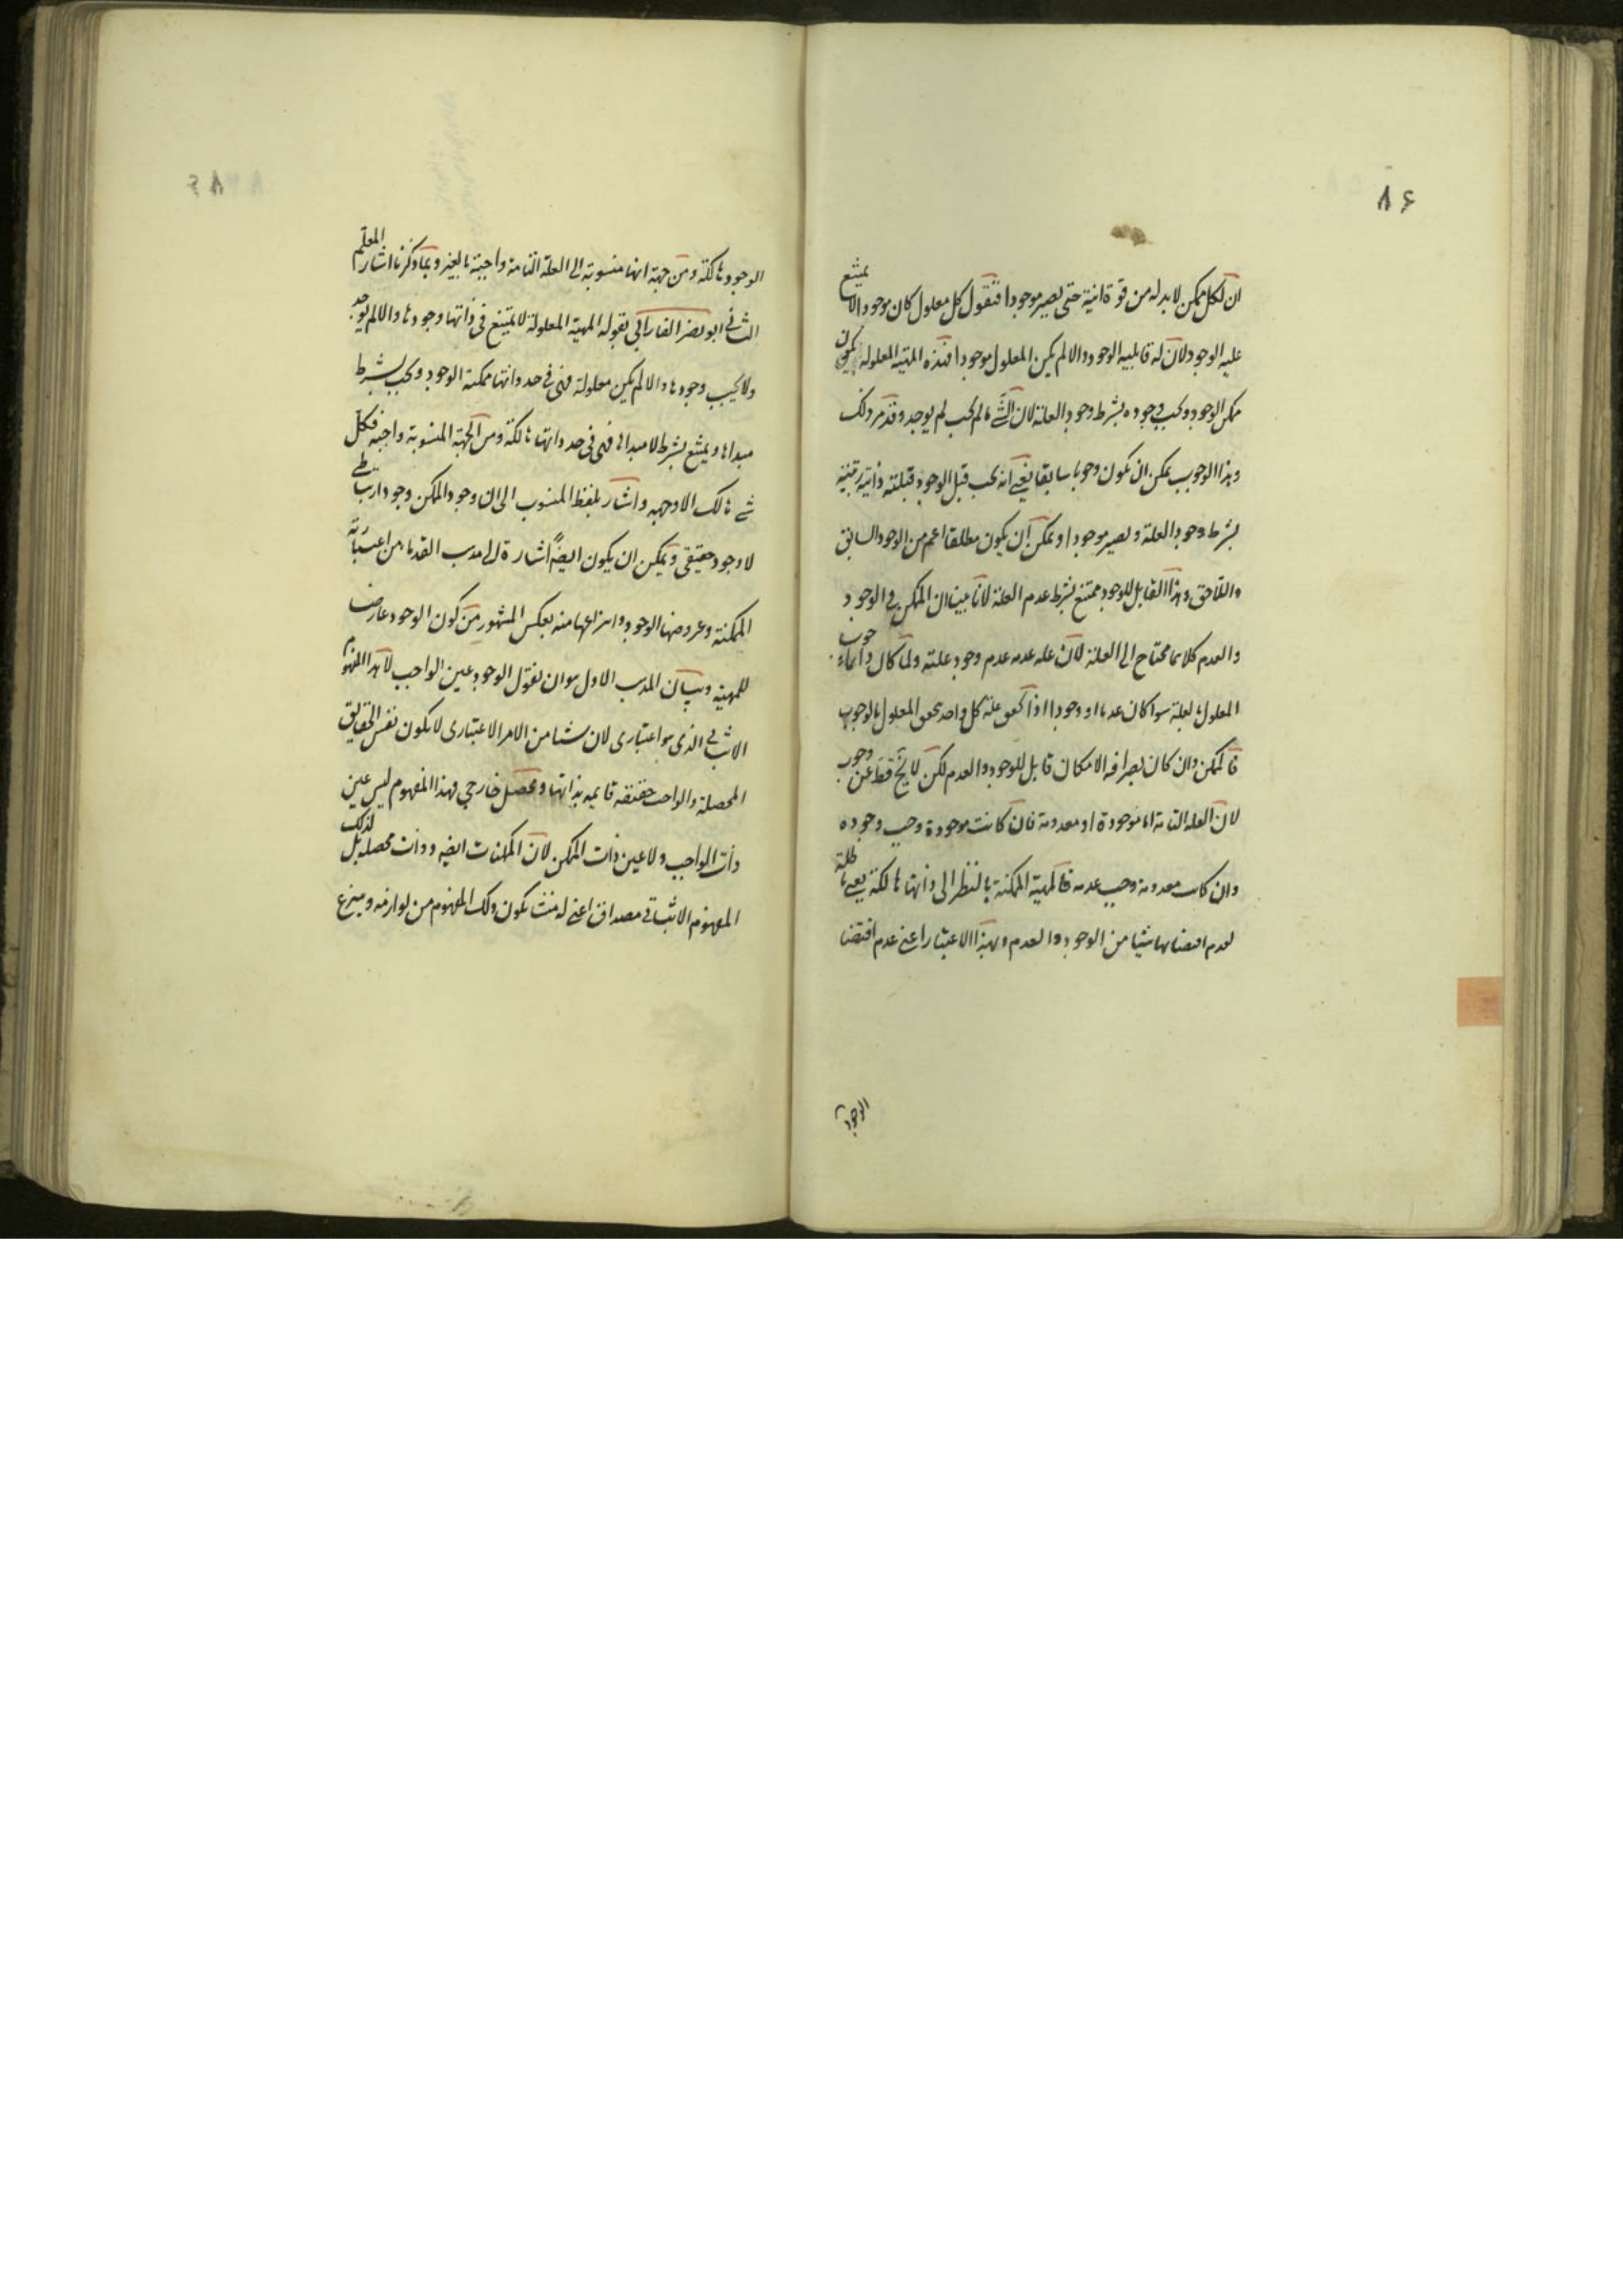 ٨۶
ان لكل ممكن لا بد له من قوة انية حتى يصير موجودا فنقول كل معلول كان موجودا لا يمتنع
عليه الوجود لان له قابلية الوجود والا لم يكن المعلول موجودا فهذه المهية المعلولة يكون
ممكن الوجود ويجب وجوده بشرط وجود العلة لان الشئ ما لم يجب لم يوجد وقد مر ذلك
وهذا الوجوب يمكن ان يكون وجوبا سابقا يعنى انه يجب قبل الوجود قبلية ذاتية رتبية
بشرط وجود العلة ويصير موجودا ويمكن ان يكون مطلقا اعم من الوجود السابق
واللاحق وهذا القابل للوجود ممتنع بشرط عدم العلة لانا بينا ان الممكن فى الوجود
والعدم كلاهما محتاج الى العلة لان علة عدمه عدم وجود علته ولما كان دائما وجوب
المعلول بالعلة سوا كان عدما او وجودا اذا تحقق علة كل واحد تحقق المعلول بالوجوب
فالممكن وان كان بصرافة الامكان قابل للوجود والعدم لكن لا يخ قط عن وجوب
لان العلة التامة اما موجودة او معدومة فان كانت موجودة وجب وجوده
وان كانت معدومة وجب عدمه فالمهية الممكنة بالنظر الى ذاتها هالكة يعنى باطلة
لعدم اقتضائها شيئا من الوجود والعدم وبهذا الاعتبار اعنى عدم اقتضا
الوجود
الوجود هالكة ومن جهة انها منسوبة الى العلة التامة واجبة بالغير وبما ذكرنا اشار المعلم
الثانى ابو نصر الفارابى بقوله المهية المعلولة لا يمتنع فى ذاتها وجودها والا لم يوجد
ولا يجب وجودها والا لم يكن معلولة فهى فى حد ذاتها ممكنة الوجود ويجب بشرط
مبداها ويمتنع بشرط لا مبداها فهى فى حد ذاتها هالكة ومن الجهة المنسوبة واجبة فكل
شئ هالك الا وجهه واشار بلفظ المنسوب الى ان وجود الممكن وجود ارتباطى
لا وجود حقيقى ويمكن ان يكون ايضا اشارة الى مذهب القدماء من اعتبارية
الممكنة وعروضها الوجود وانتزاعها منه بعكس المشهور من كون الوجود عارض
للمهية وبيان المذهب الاول هو ان نقول الوجود عين الواجب لا هذا المفهوم
الاثباتى الذى هو اعتبارى لان شيئا من الامر الاعتبارى لا يكون نفس الحقايق
المحصلة والواجب حقيقة قايمة بذاتها ومحصل خارجى فهذا المفهوم ليس عين
ذات الواجب ولا عين ذات الممكن لان الممكنات ايضا ذوات محصلة بل لذلك
المفهوم الاثباتى مصداق اعنى له منشأ يكون ذلك المفهوم من لوازمه وينتزع